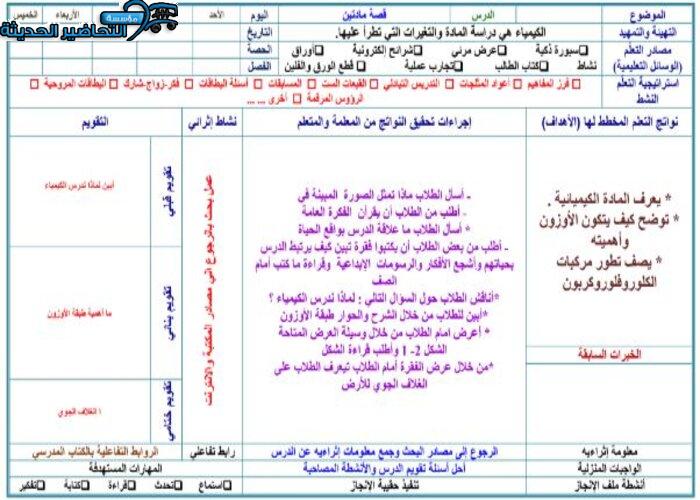 مؤسسة
التحاضير الحديثة
الموضوع
الدرس
قصة مادتين
اليوم
الأحد
الأربعاء
الخميس
التهيئة والتمهيد
الكيمياء هي دراسة المادة والتغيرات التي تطرأ عليها.
التاريخ
مصادر التعلم
(الوسائل التعليمية)
سبورة ذكية
عرض مرئي
شرائح إلكترونية
أوراق
نشاط
كتاب الطالب
تجارب عملية
قطع الورق والفلين
الحصة
الفصل
استراتيجية التعلم
النشط
فرز المفاهيم
أعواد المثلجات
التدريس التبادلي
القبعات الست
المسابقات
أسئلة البطاقات
فكر-زواج-شارك
البطاقات المروحية
الرؤوس المرقمة
أخرى ... ...
نواتج التعلم المخطط لها (الأهداف)
إجراءات تحقيق النواتج من المعلمة والمتعلم
نشاط إثرائي
التقويم
* يعرف المادة الكيميائية .
* توضح كيف يتكون الأوزون
وأهميته
* يصف تطور مركبات
الكلوروفلوروكربون
الخبرات السابقة
ـ أسأل الطلاب ماذا تمثل الصورة المبينة في
- أطلب من الطلاب أن يقرأن الفكرة العامة
* أسأل الطلاب ما علاقة الدرس بواقع الحياة
- أطلب من بعض الطلاب أن يكتبوا فقرة تبين كيف يرتبط الدرس
بحياتهم وأشجع الأفكار والرسومات الإبداعية وقراءة ما كتب أمام
الصف
*أناقش الطلاب حول السؤال التالي : لماذا ندرس الكيمياء ؟
*أبين للطلاب من خلال الشرح والحوار طبقة الأوزون
* أعرض امام الطلاب من خلال وسيلة العرض المتاحة
الشكل 2- 1 وأطلب قراءة الشكل
*من خلال عرض الفقرة أمام الطلاب تيعرف الطلاب على
الغلاف الجوي للأرض
عمل بحث بالرجوع الى مصادر المكتبة والانترنت
تقويم قبلي
أبين لماذا ندرس الكيمياء
تقويم بنائي
ما أهمية طبقة الأوزون
تقويم ختامي
ا الغلاف الجوي
معلومة إثرائه
الرجوع إلى مصادر البحث وجمع معلومات إثراءيه عن الدرس
رابط تفاعلي
الروابط التفاعلية بالكتاب المدرسي
الواجبات المنزلية
أحل أسئلة تقويم الدرس والأنشطة المصاحبة
المهارات المستهدفة
أنشطة ملف الإنجاز
تنفيذ حقيبة الإنجاز
استماع
تحدث
قراءة
كتابة
تفكير